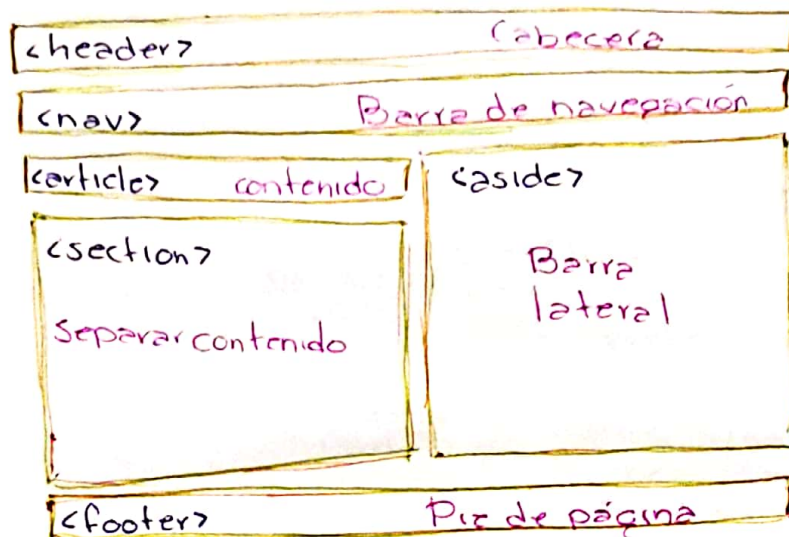 <header> Cabecera
<nav> Barra de navegación
<article> contenido
<section>
separar contenido
<aside>
Barra
lateral
<footer> Pie de página